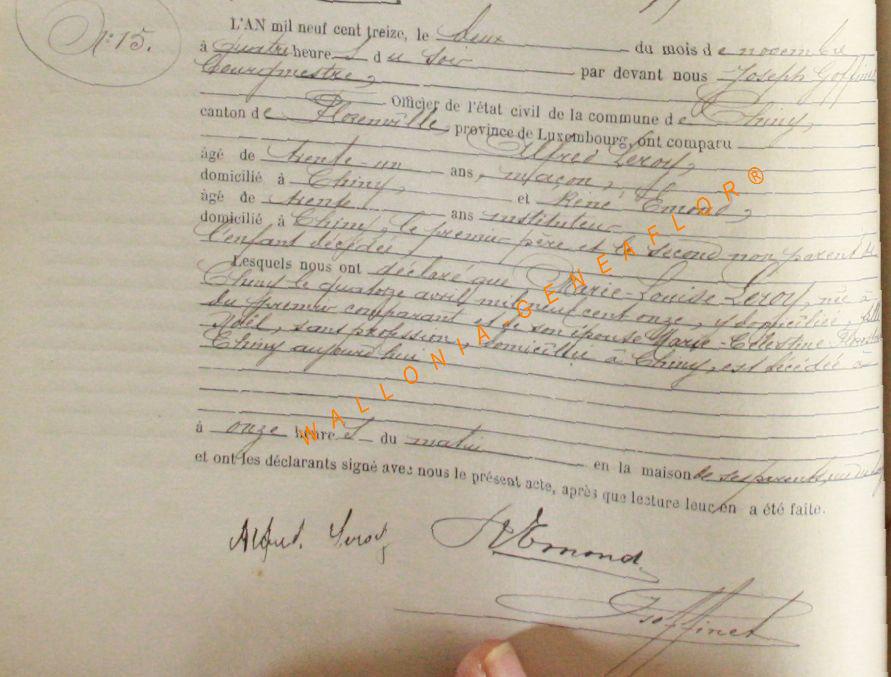 N: 15.
L'AN mil neuf cent treize, le deux du mois de novembre
à quatre heures du soir par devant nous Joseph Goffinet
bourgmestre,
Officier de l'état civil de la commune de Chiny,
canton de Florenville, province de Luxembourg, ont comparu
Alfred Leroy,
âgé de trente-un ans, maçon,
domicilié à Chiny, et René Emond,
âgé de trente ans instituteur
domicilié à Chiny, le premier père et le second non parent de
l'enfant décédée
Lesquels nous ont déclaré que Marie-Louise Leroy, née à
Chiny le quatorze avril mil neuf cent onze, y domiciliée, fille
du premier comparant et de son épouse Marie-Célestine
Noël, sans profession, domiciliée à Chiny, est décédée à
Chiny aujourd'hui
à onze heures du matin
en la maison de ses parents,
et ont les déclarants signé avec nous le présent acte, après que lecture leur en a été faite.
Alfred Leroy
R Emond
J Goffinet
WALLONIA GENEAFLOR®